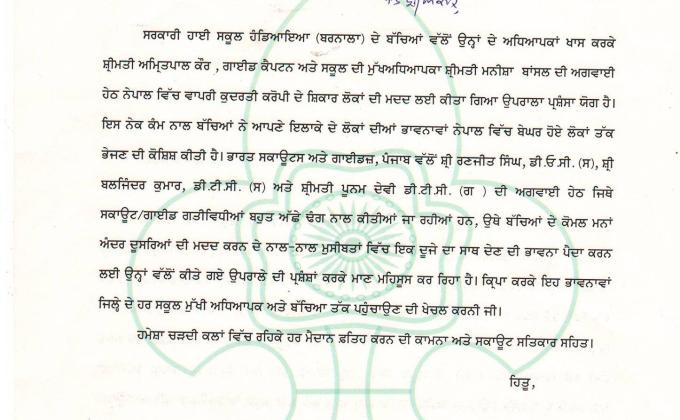 ਸਰਕਾਰੀ ਹਾਈ ਸਕੂਲ ਹੰਡਿਆਇਆ (ਬਰਨਾਲਾ) ਦੇ ਬੱਚਿਆਂ ਵੱਲੋਂ ਉਨ੍ਹਾਂ ਦੇ ਅਧਿਆਪਕਾਂ ਖਾਸ ਕਰਕੇ
ਸ਼੍ਰੀਮਤੀ ਅਮ੍ਰਿਤਪਾਲ ਕੌਰ , ਗਾਈਡ ਕੈਪਟਨ ਅਤੇ ਸਕੂਲ ਦੀ ਮੁੱਖਅਧਿਆਪਕਾ ਸ਼੍ਰੀਮਤੀ ਮਨੀਸ਼ਾ ਬਾਂਸਲ ਦੀ ਅਗਵਾਈ
ਹੇਠ ਨੇਪਾਲ ਵਿੱਚ ਵਾਪਰੀ ਕੁਦਰਤੀ ਕਰੋਪੀ ਦੇ ਸ਼ਿਕਾਰ ਲੋਕਾਂ ਦੀ ਮਦਦ ਲਈ ਕੀਤਾ ਗਿਆ ਉਪਰਾਲਾ ਪ੍ਰਸ਼ੰਸਾ ਯੋਗ ਹੈ।
ਇਸ ਨੇਕ ਕੰਮ ਨਾਲ ਬੱਚਿਆਂ ਨੇ ਆਪਣੇ ਇਲਾਕੇ ਦੇ ਲੋਕਾਂ ਦੀਆਂ ਭਾਵਨਾਵਾਂ ਨੇਪਾਲ ਵਿੱਚ ਬੇਘਰ ਹੋਏ ਲੋਕਾਂ ਤੱਕ
ਭੇਜਣ ਦੀ ਕੋਸ਼ਿਸ਼ ਕੀਤੀ ਹੈ। ਭਾਰਤ ਸਕਾਊਟਸ ਅਤੇ ਗਾਈਡਜ਼, ਪੰਜਾਬ ਵੱਲੋਂ ਸ਼੍ਰੀ ਰਣਜੀਤ ਸਿੰਘ, ਡੀ.ਓ.ਸੀ. (ਸ), ਸ਼੍ਰੀ
ਬਲਜਿੰਦਰ ਕੁਮਾਰ, ਡੀ.ਟੀ.ਸੀ. (ਸ) ਅਤੇ ਸ਼੍ਰੀਮਤੀ ਪੂਨਮ ਦੇਵੀ ਡੀ.ਟੀ.ਸੀ. (ਗ ) ਦੀ ਅਗਵਾਈ ਹੇਠ ਜਿਥੇ
ਸਕਾਊਟ/ਗਾਈਡ ਗਤੀਵਿਧੀਆਂ ਬਹੁਤ ਅੱਛੇ ਢੰਗ ਨਾਲ ਕੀਤੀਆਂ ਜਾ ਰਹੀਆਂ ਹਨ, ਉਥੇ ਬੱਚਿਆਂ ਦੇ ਕੋਮਲ ਮਨਾਂ
ਅੰਦਰ ਦੂਸਰਿਆਂ ਦੀ ਮਦਦ ਕਰਨ ਦੇ ਨਾਲ-ਨਾਲ ਮੁਸੀਬਤਾਂ ਵਿੱਚ ਇਕ ਦੂਜੇ ਦਾ ਸਾਥ ਦੇਣ ਦੀ ਭਾਵਨਾ ਪੈਦਾ ਕਰਨ
ਲਈ ਉਨ੍ਹਾਂ ਵੱਲੋਂ ਕੀਤੇ ਗਏ ਉਪਰਾਲੇ ਦੀ ਪ੍ਰਸ਼ੰਸ਼ਾਂ ਕਰਕੇ ਮਾਣ ਮਹਿਸੂਸ ਕਰ ਰਿਹਾ ਹੈ। ਕ੍ਰਿਪਾ ਕਰਕੇ ਇਹ ਭਾਵਨਾਵਾਂ
ਜਿਲ੍ਹੇ ਦੇ ਹਰ ਸਕੂਲ ਮੁੱਖੀ ਅਧਿਆਪਕ ਅਤੇ ਬੱਚਿਆ ਤੱਕ ਪਹੁੰਚਾਉਣ ਦੀ ਖੇਚਲ ਕਰਨੀ ਜੀ।
ਹਮੇਸ਼ਾ ਚੜਦੀ ਕਲਾਂ ਵਿੱਚ ਰਹਿਕੇ ਹਰ ਮੈਦਾਨ ਫ਼ਤਿਹ ਕਰਨ ਦੀ ਕਾਮਨਾ ਅਤੇ ਸਕਾਊਟ ਸਤਿਕਾਰ ਸਹਿਤ।
ਹਿਤੂ,